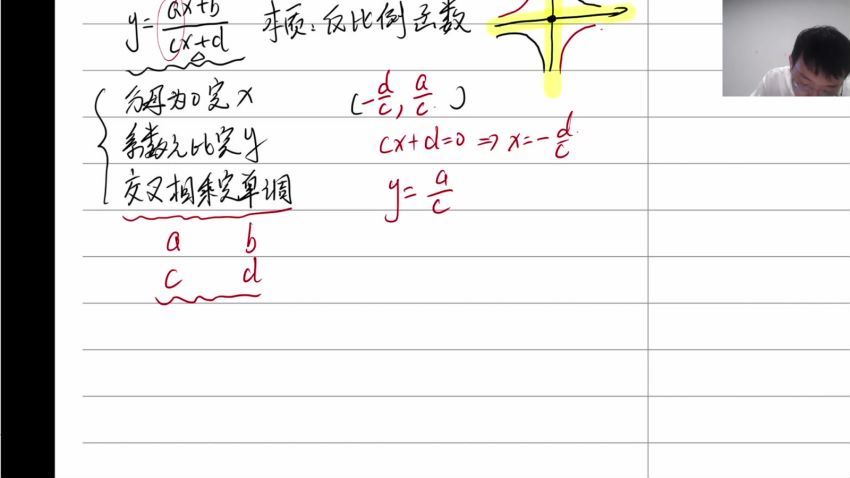 y=\frac{ax+b}{cx+d} 本质:反比例函数
分母为0定x (-\frac{d}{c}, \frac{a}{c})
系数之比定y cx+d=0⇒x=-\frac{d}{c}
交叉相乘定单调 y=\frac{a}{c}
a b
c d